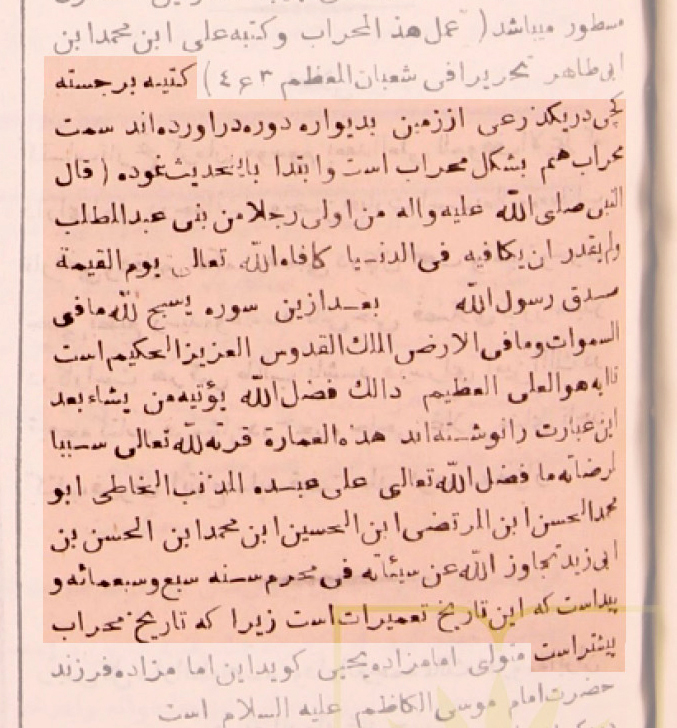 مسطور میباشد ( عمل هذ المحراب وکتبه علی ابن محمدابن
ابی طاهر تحریرا فی شعبان المعظم ۴۶۳ ) کتیبه برجسته
کچی در یکذرعی اززمین بدیواره دوره دراورده اند سمت
محراب هم بشکل محراب است وابتدا باینحدیث نموده ( قال
النبی صلی الله علیه واله من اولی رجلا من بنی عبدالمطلب
ولم یقدر ان یکافیه فی الدنیا کافاه الله تعالی یوم القیمة
صدق رسول الله بعدازین سوره یسبح لله مافی
السموات ومافی الارض الملك القدوس العزیزالحکیم است
تابه هوالعلی العظیم ذالك فضل الله یؤتیه من یشاء بعد
این عبارت رانوشته اند هذه العمارة قربه لله تعالی سببا
لرضاته ما فضل الله تعالی علی عبده المذنب الخاطی ابو
محمدالحسن ابن المرتضی ابن الحسین ابن محمدابن الحسن بن
ابی زید تجاوز الله عن سیئاته فی محرم سنه سبع وسبعمائه و
پیداست که این تاریخ تعمیرات است زیرا که تاریخ محراب
پیشتراست متولی امامزاده یحیی کویداین اما مزاده فرزند
حضرت امام موسی الکاظم علیه السلام است